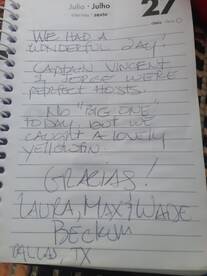 Julio · Julho
27
viernes · sexta
WE HAD A
WONDERFUL DAY!
CAPTAIN VINCENT
& JORGE WERE
PERFECT HOSTS.
NO "BIG ONE"
TODAY, BUT WE
CAUGHT A LOVELY
YELLOWFIN.
GRACIAS!
LAURA, MAX & WADE
BECKUM
DALLAS, TX